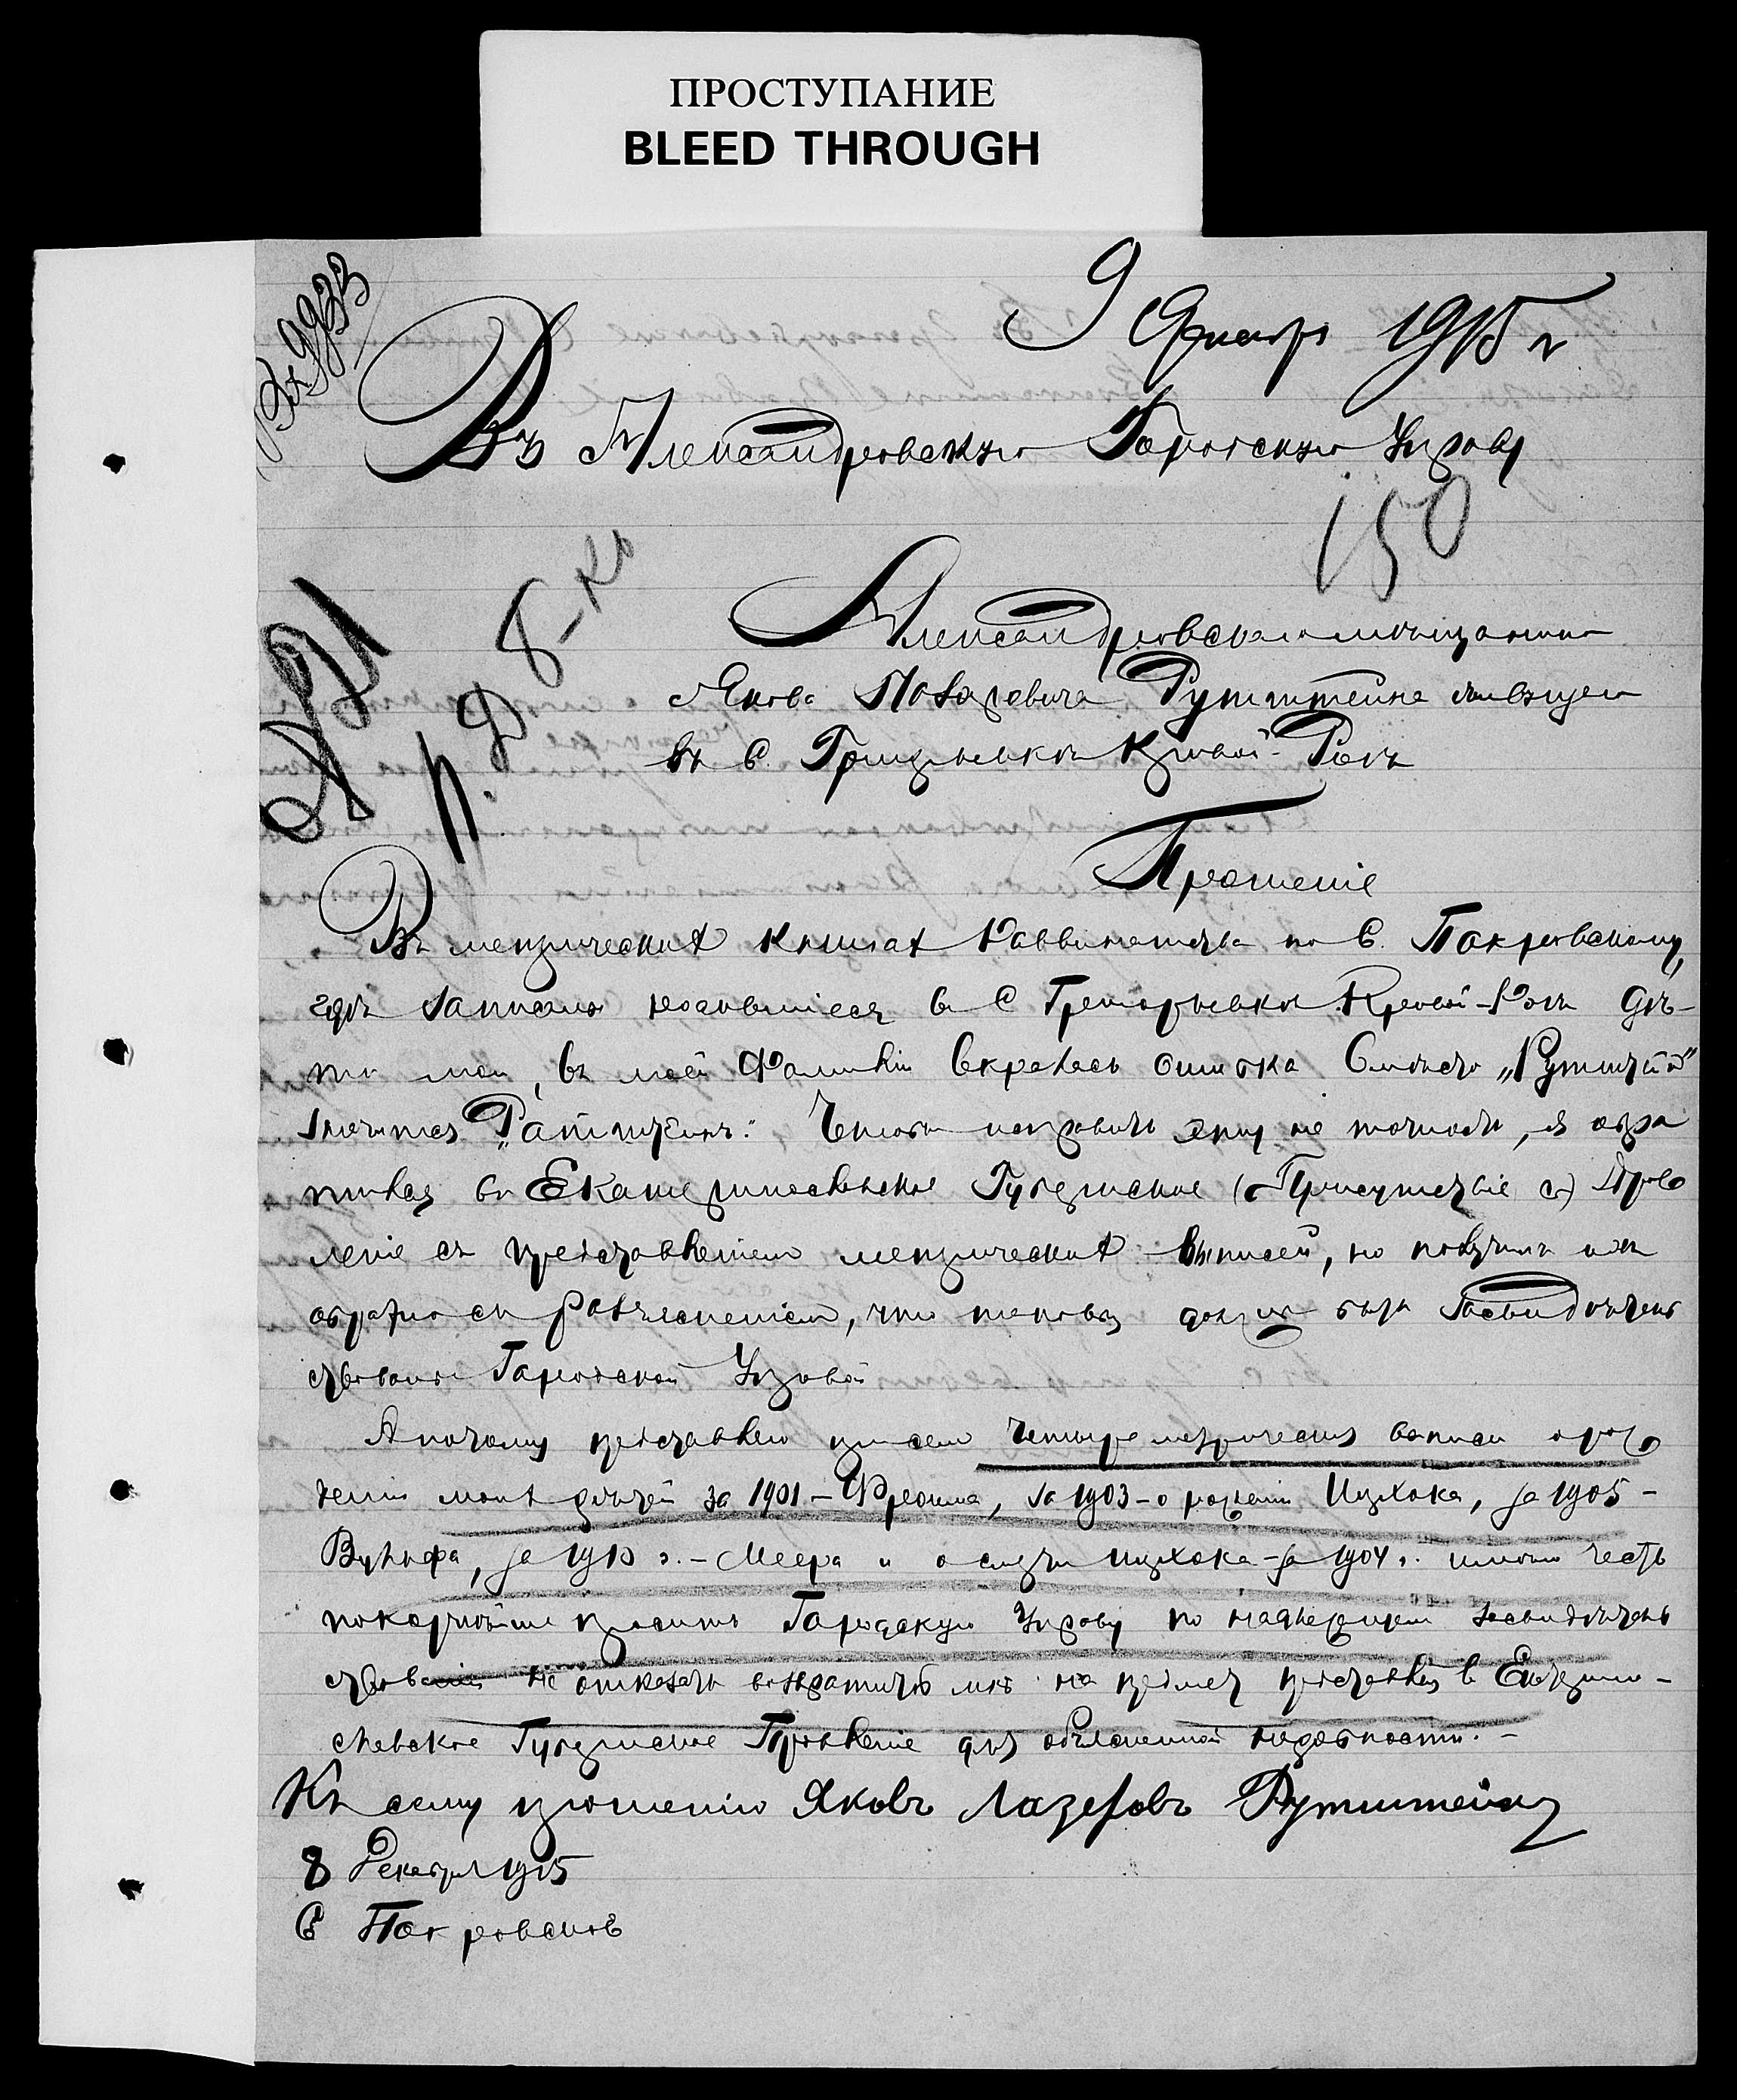 ПРОСТУПАНИЕ
BLEED THROUGH
Вх 9933
9 Декабря 1915 г
Въ Александровскую Городскую Управу
150
8-ко
Александровскаго мѣщанина
Якова Лазаревича Рутштейна живущаго
въ с. Григорьевкѣ Кривой-Рогъ
Прошеніе
Въ метрическихъ книгахъ Раввината по с. Покровскому,
гдѣ записаны родившіеся въ с Григорьевкѣ Кривой-Рогъ дѣ-
ти мои, въ моей фамиліи вкралась ошибка вмѣсто „Рутштейнъ"
значится „Ратштейнъ". Чтобы исправить эту не точность, я обра
тился въ Екатеринославское Губернское (Присутствіе) Прав
леніе съ представленіемъ метрическихъ выписей, но получилъ ихъ
обратно съ разъясненіемъ, что таковыя должны быть засвидѣтель
ствованы Городской Управой
А потому представляю при семъ четыре метрическихъ выписи о рож
деніи моихъ дѣтей за 1901 - Фроима, за 1903 - о рожденіи Ицхока, за 1905 -
Вульфа, за 1910 г. - Меера и о смерти Ицхока - за 1904 г. имѣю честь
покорнѣйше просить Городскую Управу по надлежащемъ засвидѣтель
ствованіи не отказать возвратить мнѣ на предметъ представленія въ Екатерино-
славское Губернское Правленіе для объясненной надобности. -
Къ сему прошенію Яковъ Лазеровъ Рутштейнъ
8 Декабря 1915
С Покровское